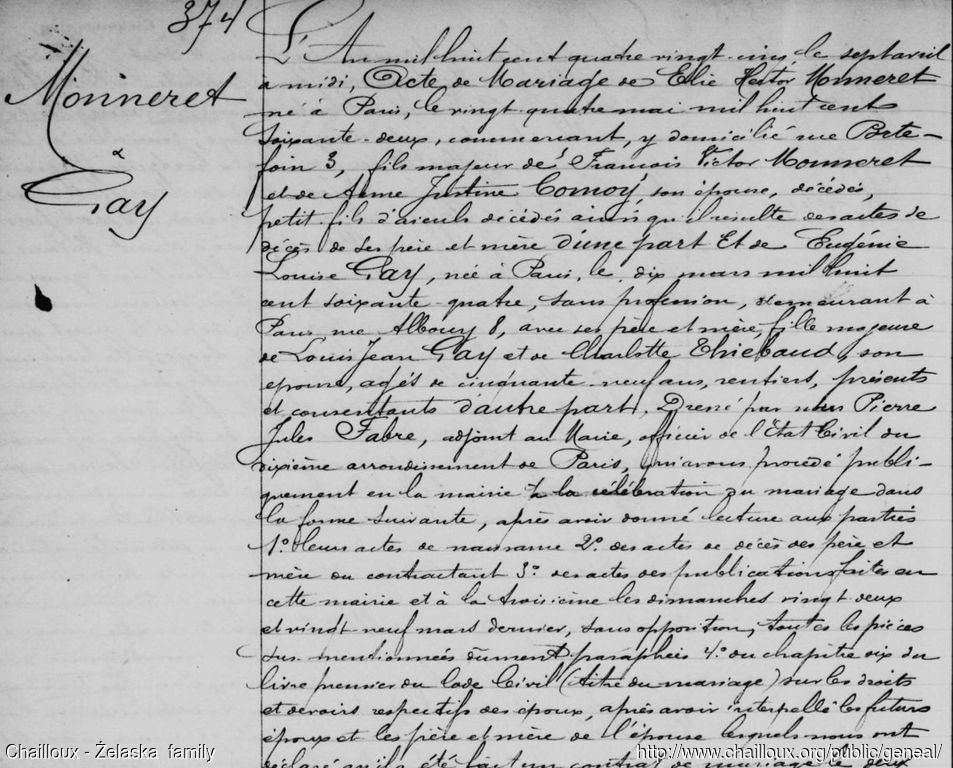 374
Monneret
&
Gay
L'An mil huit cent quatre vingt-cinq, le sept avril
a midi, Acte de Mariage de Elie Hector Monneret
né à Paris, le vingt quatre mai mil huit cent
soixante-deux, commerçant, y domicilié rue Porte-
foin 3, fils majeur de François Victor Monneret
et de Anne Justine Comoy, son épouse, décédés,
petit fils d'aïeuls décédés ainsi qu'il résulte des actes de
décès de ses père et mère d'une part Et de Eugénie
Louise Gay, née à Paris, le dix mars mil huit
cent soixante-quatre, sans profession, demeurant à
Paris rue Albouy 8, avec ses père et mère, fille majeure
de Louis Jean Gay et de Charlotte Thiébaud, son
épouse, agés de cinquante-neuf ans, rentiers, présents
et consentants d'autre part, Dressé par nous Pierre
Jules Fabre, adjoint au Maire, officier de l'Etat Civil du
dixième arrondissement de Paris, qui avons procédé publi-
quement en la mairie à la célébration du mariage dans
la forme suivante, après avoir donné lecture aux parties
1º de leurs actes de naissance 2º des actes de décès des père et
mère du contractant 3º des actes des publications faites en
cette mairie et à la troisième les dimanches vingt-deux
et vingt-neuf mars dernier, sans opposition, toutes les pièces
sus-mentionnées dûment paraphées 4º du chapitre six du
livre premier du Code Civil (titre du mariage) sur les droits
et devoirs respectifs des époux, après avoir interpellé les futurs
époux et les père et mère de l'épouse lesquels nous ont
déclaré qu'il a été fait un contrat de mariage le deux
Chailloux - Żelaska family
http://www.chailloux.org/public/geneal/